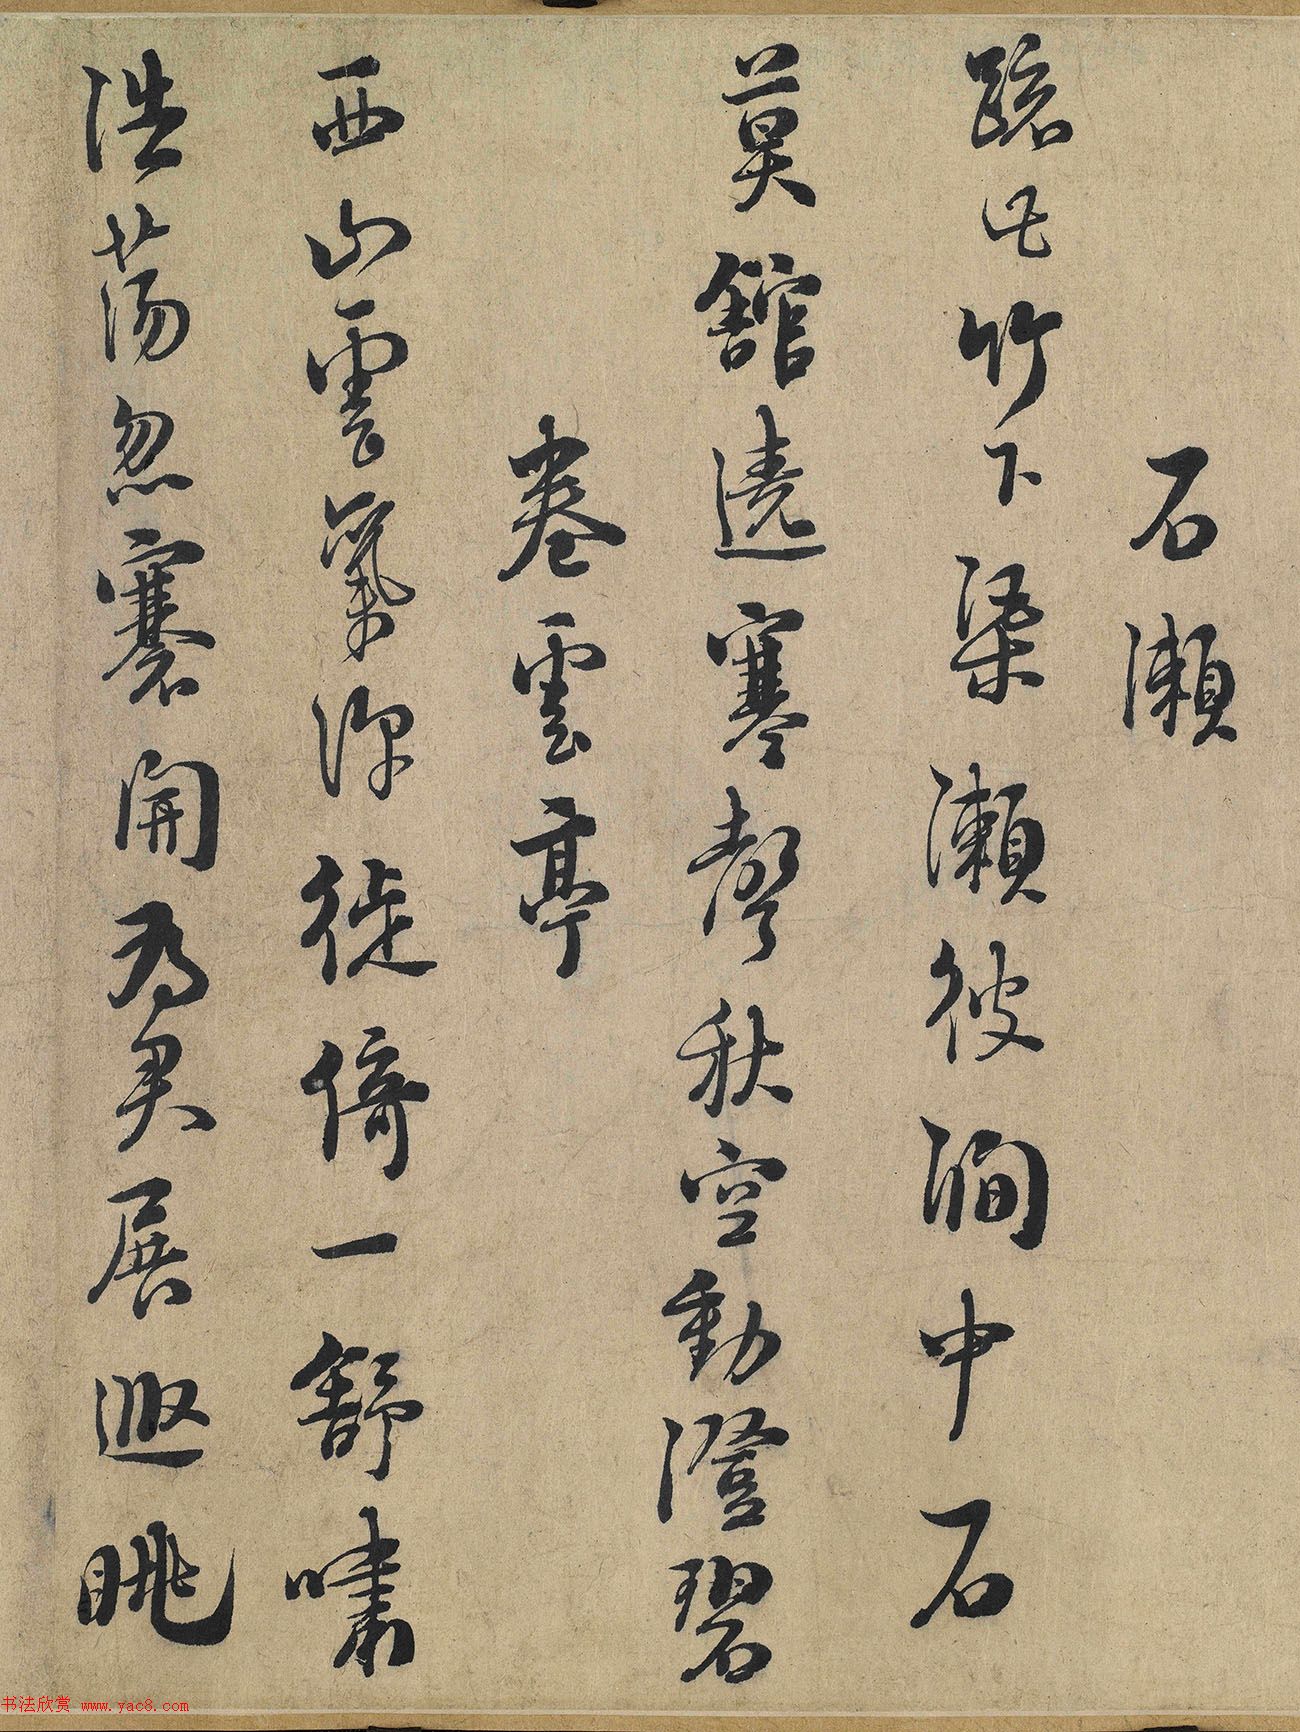 石瀨
疏此竹下渠瀨彼澗中石
莫舘遶寒聲秋空動澄碧
卷雲亭
西山雲氣深徙倚一舒嘯
浩蕩忽褰開為君展遐眺
书法欣赏 www.yac8.com